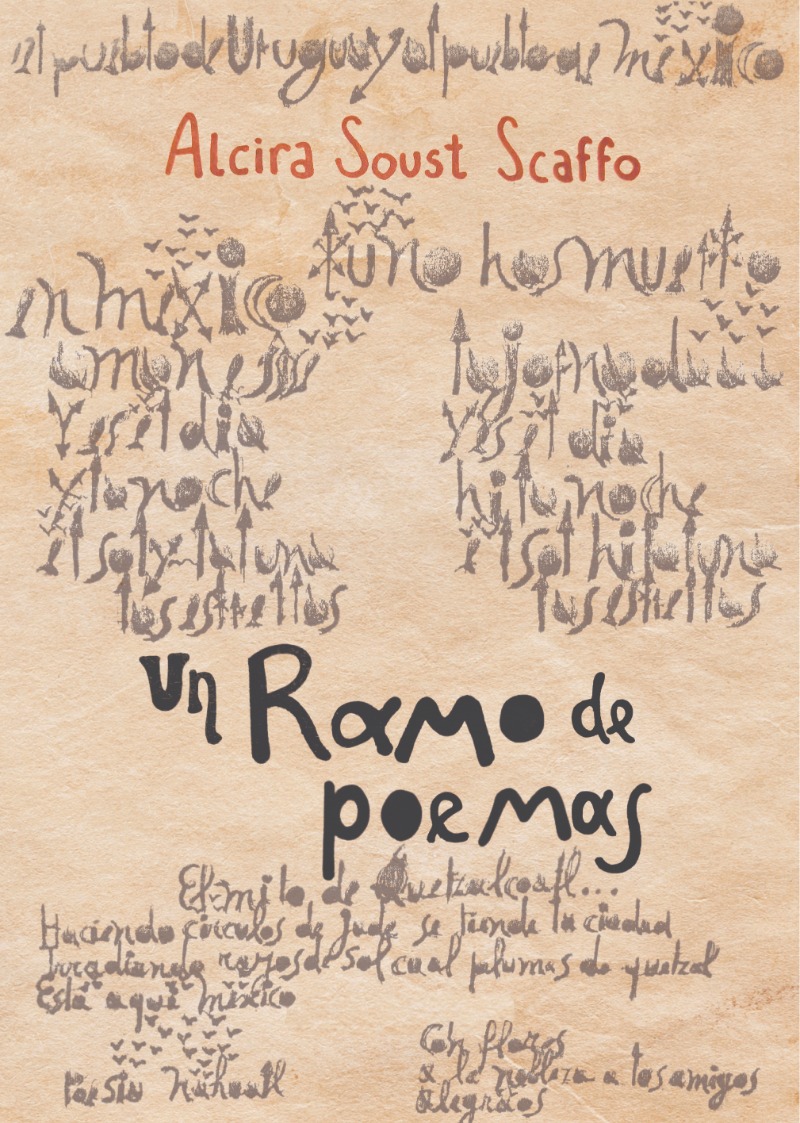 el pueblo de Uruguay al pueblo de México
Alcira Soust Scaffo
en México
amanece
y es el día
y la noche
el sol y la luna
las estrellas
tú no has muerto
y es el día
hi la noche
el sol hi la luna
las estrellas
Un Ramo de
poemas
El mito de Quetzalcoatl...
Haciendo círculos de jade se tiende la ciudad
Irradiando rayos de sol cual plumas de quetzal
Está aquí México
Poesía Náhuatl
Con flores
a la nobleza a los amigos
alegraos